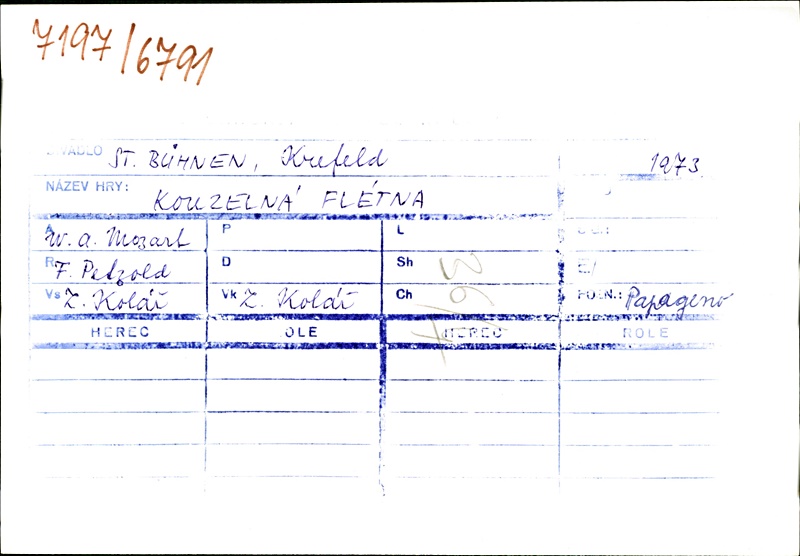 7197/6791
DIVADLO ST. BÜHNEN, Krefeld 1973.
NÁZEV HRY: KOUZELNÁ FLÉTNA
A W. A. Mozart P L
R F. Petzold D Sh
Vs Z. Kolář Vk Z. Kolář Ch POZN.: Papageno
HEREC ROLE HEREC ROLE